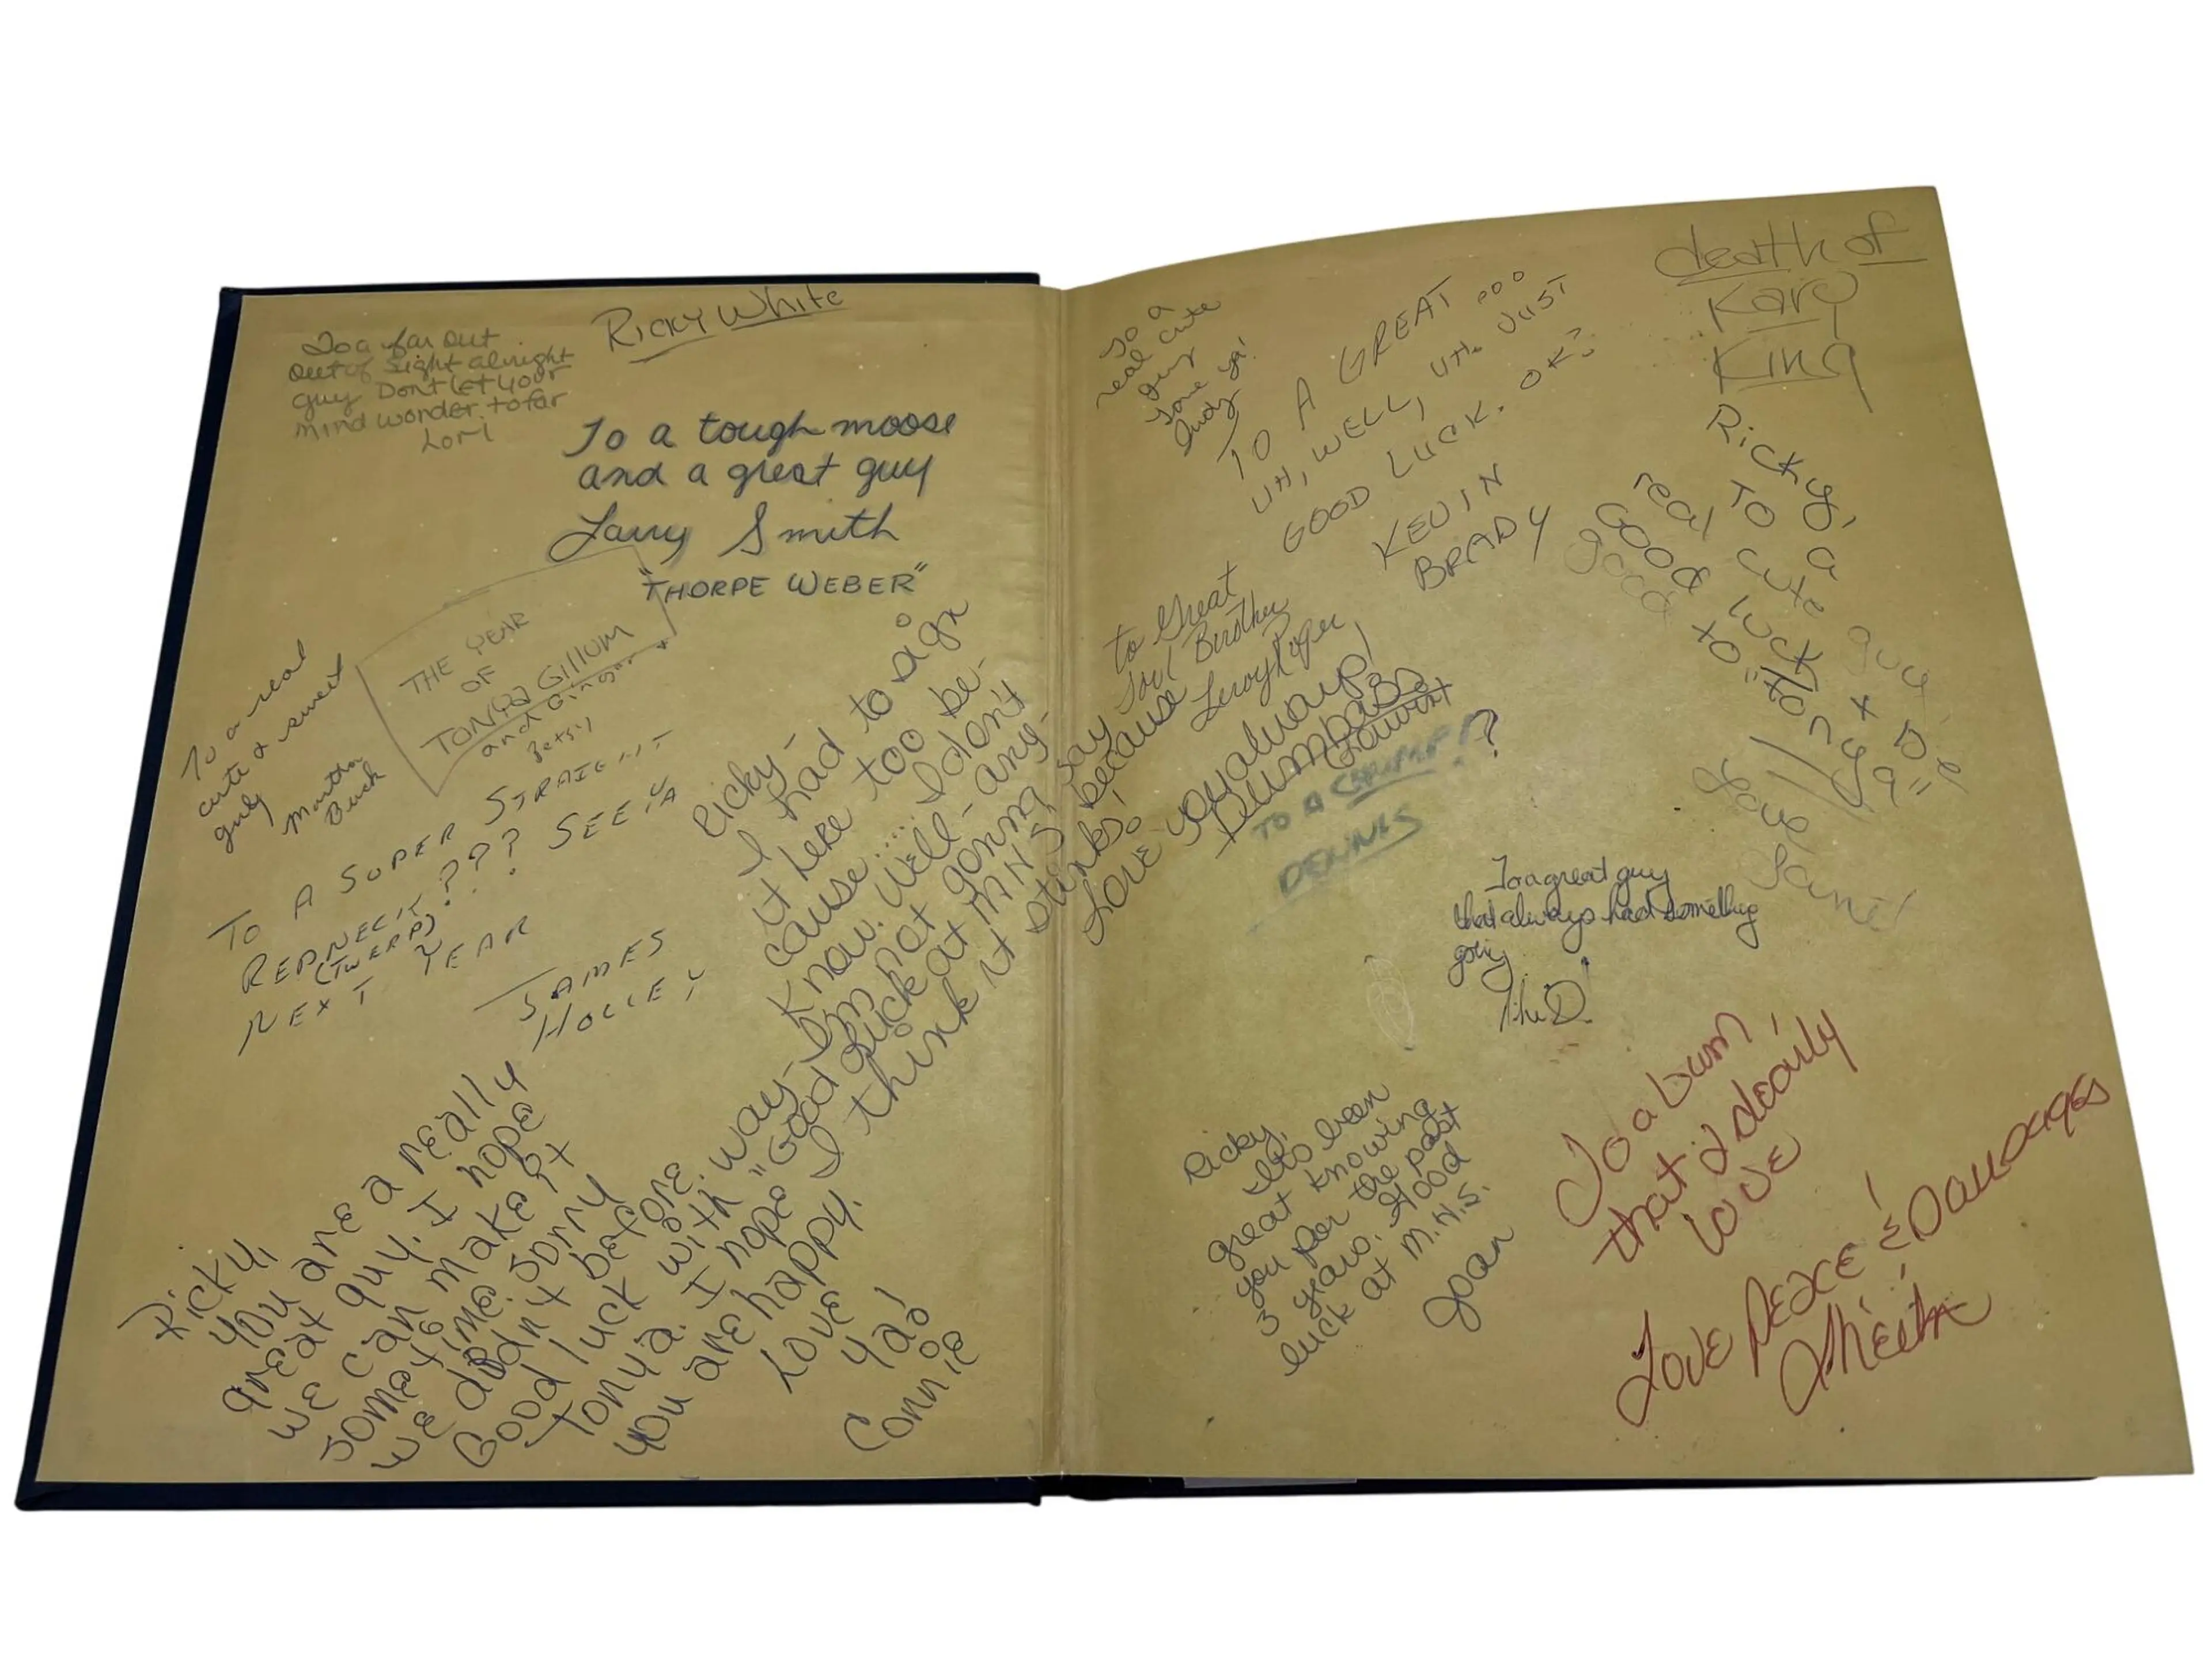 Ricky White
To a far out
out of sight alright
guy Dont let your
mind wonder to far
Lori
To a tough moose
and a great guy
Larry Smith
"THORPE WEBER"
THE YEAR
OF
TONYA GILLUM
and Ginger
Betsy
To a real
cute & sweet
guy
Martha
Buck
TO A SUPER STRAIGHT
REDNECK ??? SEE YA
(TWERP)
NEXT YEAR
JAMES
HOLLEY
Ricky-
I had to sign
it here too be-
cause.... I don't
know. Well- any-
way- I'm not gonna say
"Good Luck at M.H.S." because
I think it stinks!
Love ya always!
Ricky,
you are a really
great guy. I hope
we can make it
sometime. Sorry
we didn't before.
Good luck with
Tonya. I hope
you are happy.
Love
Ya!
Connie
To a
real cute
guy
Love ya!
Judy
TO A GREAT ...
UH, WELL, UH. JUST
GOOD LUCK. OK?
KEVIN
BRADY
death of
Kary
King
Ricky,
TO a
real cute guy.
Good luck & Be
good to "Tonya"
Love,
Jane!
to Great
Soul Brother
Leroy
TO A
DENNIS
?
To a great guy
that always had something
going
Ricky,
It's been
great knowing
you for the past
3 years. Good
luck at M.H.S.
Joan
To a bum
that I dearly
love
Love Peace! &
Sheila